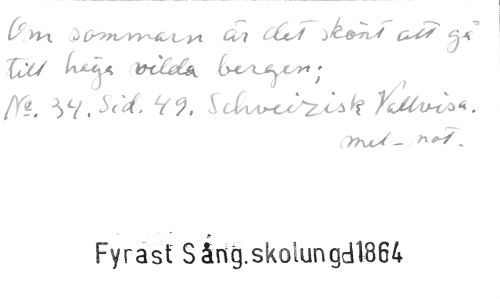 Om sommarn är det skönt att gå
till höga vilda bergen;
No. 34. Sid. 49. Schveizisk Vallvisa.
mel-not.
Fyrast Sång.skolungd1864